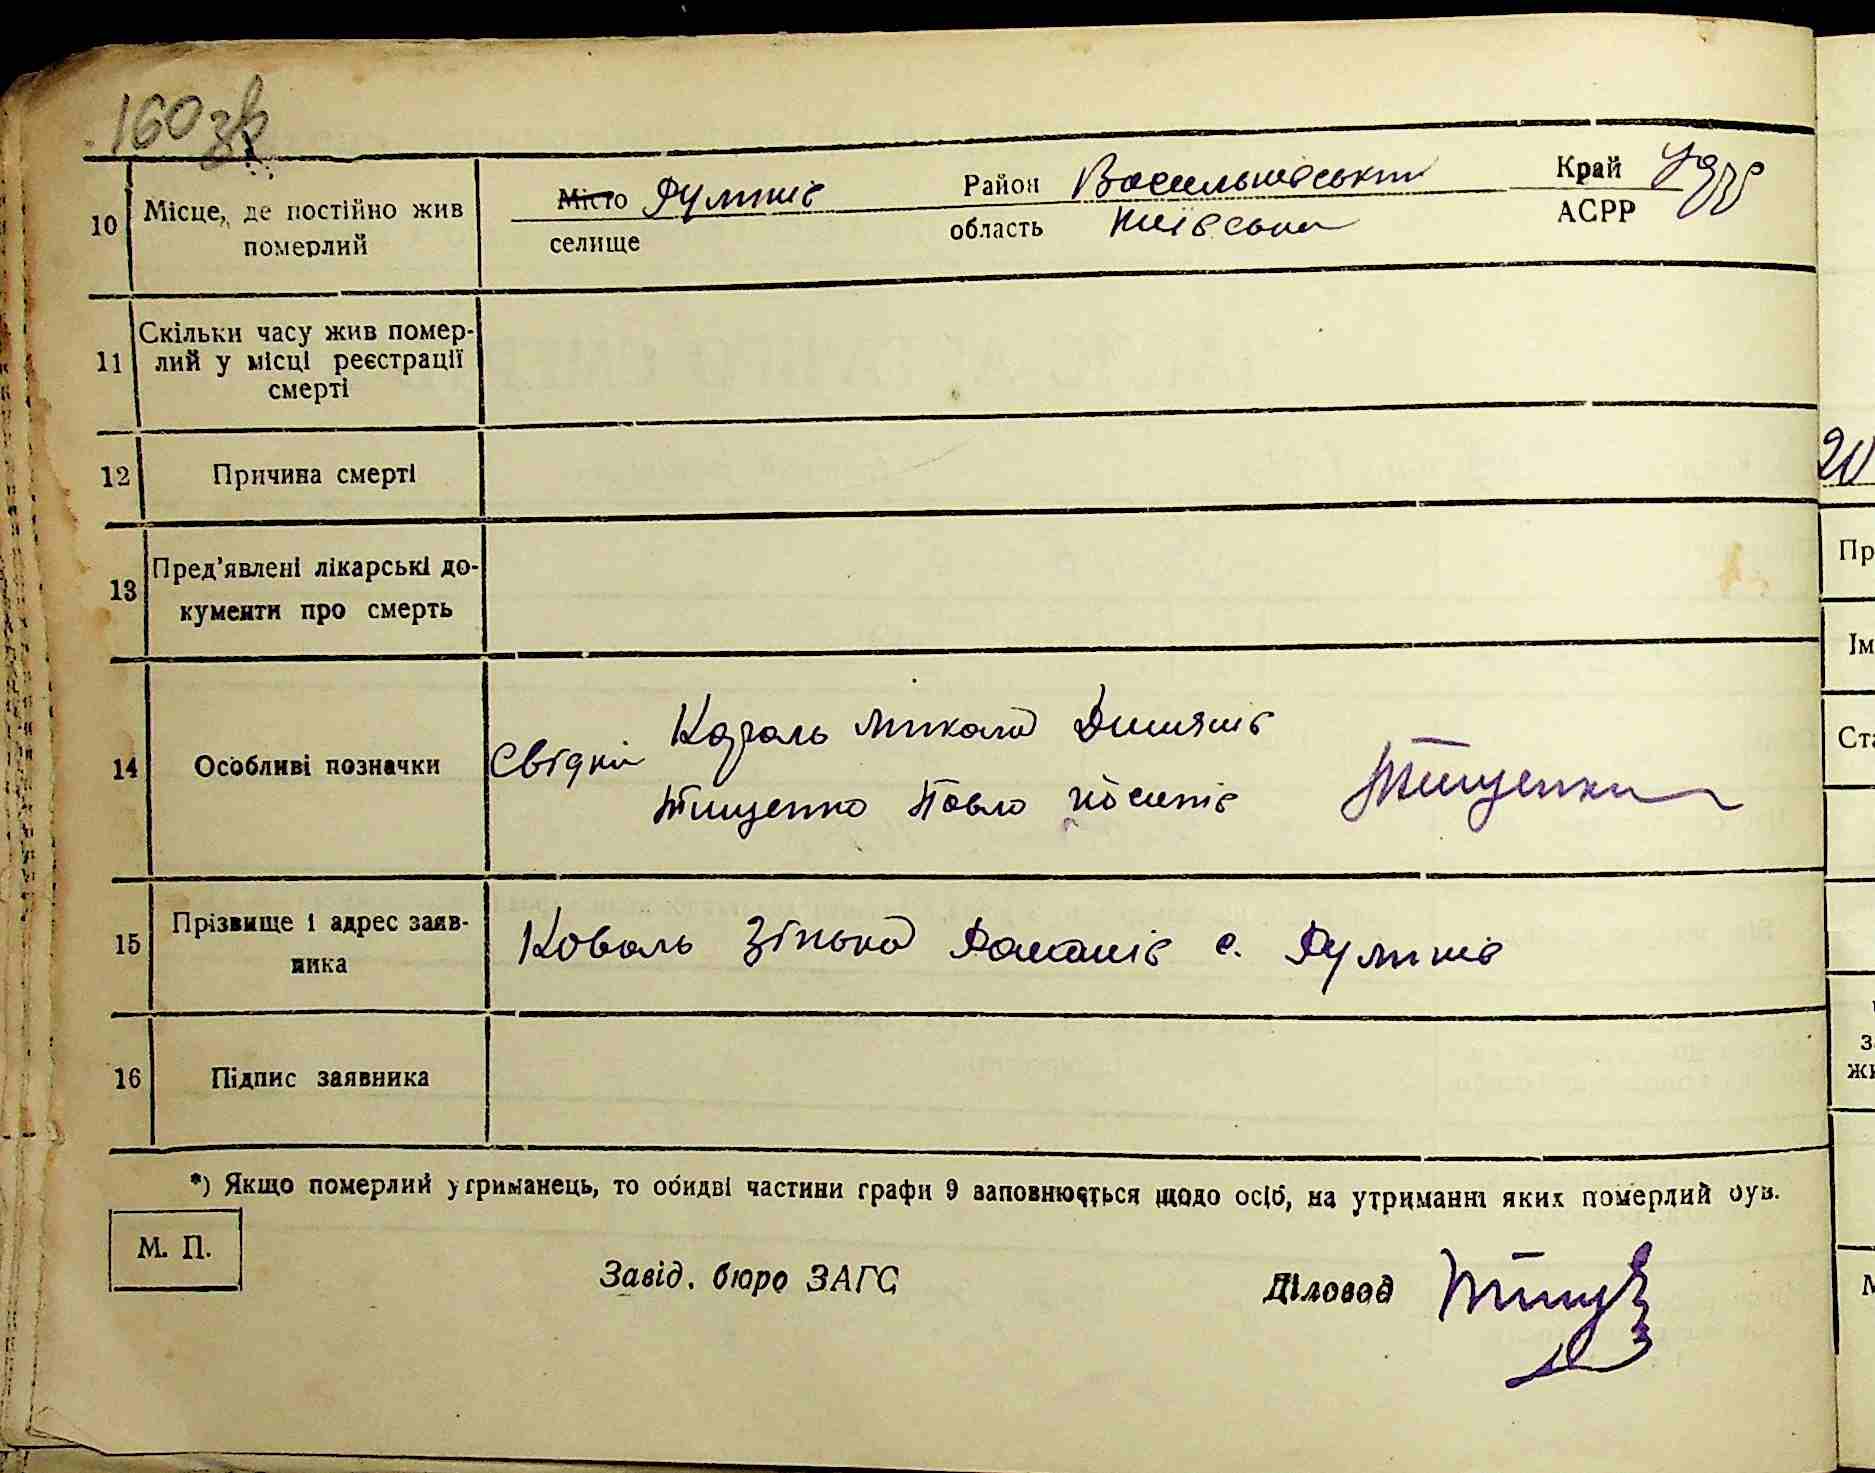 160 зв
10 Місце, де постійно жив померлий
Місто Рулики Район Васильківський Край УРСР
селище область Київська АСРР
11 Скільки часу жив помер-
лий у місці реєстрації
смерті
12 Причина смерті
13 Пред'явлені лікарські до-
кументи про смерть
14 Особливі позначки
Свідки Коваль Микола Димянів
Тищенко Павло Йосипів Тищенко
15 Прізвище і адрес заяв-
ника
Коваль Зінька Романів с.
16 Підпис заявника
*) Якщо померлий утриманець, то обидві частини графи 9 заповнюється щодо осіб, на утриманні яких померлий був.
М. П.
Завід. бюро ЗАГС Діловод
20
Пр
Ім
Ста
з
жи
М